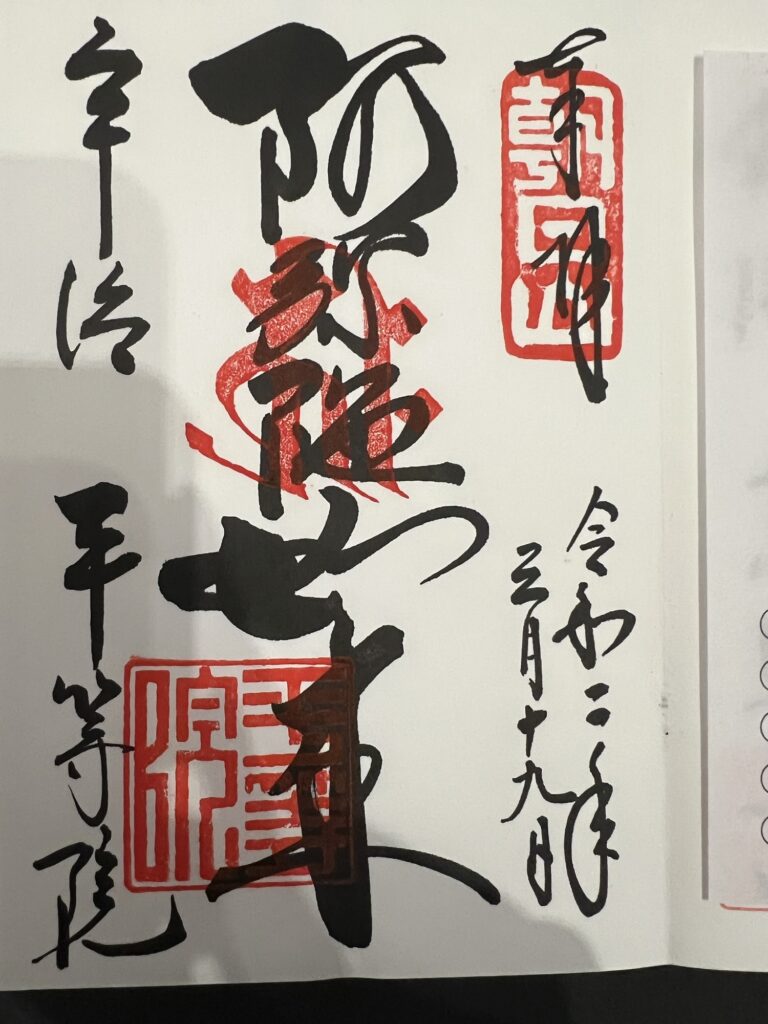 奉拝
朝日山
令和二年
三月十九日
阿弥陀如来
平等院
宇治 平等院